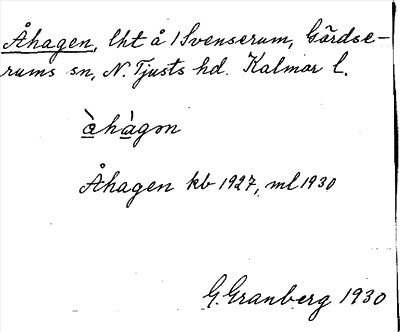 Åhagen, lht å /Svenserum, Gärdse-
rums sn, N. Tjusts hd. Kalmar l.
àhàgɔn
Åhagen kb 1927, ml 1930
G. Granberg 1930